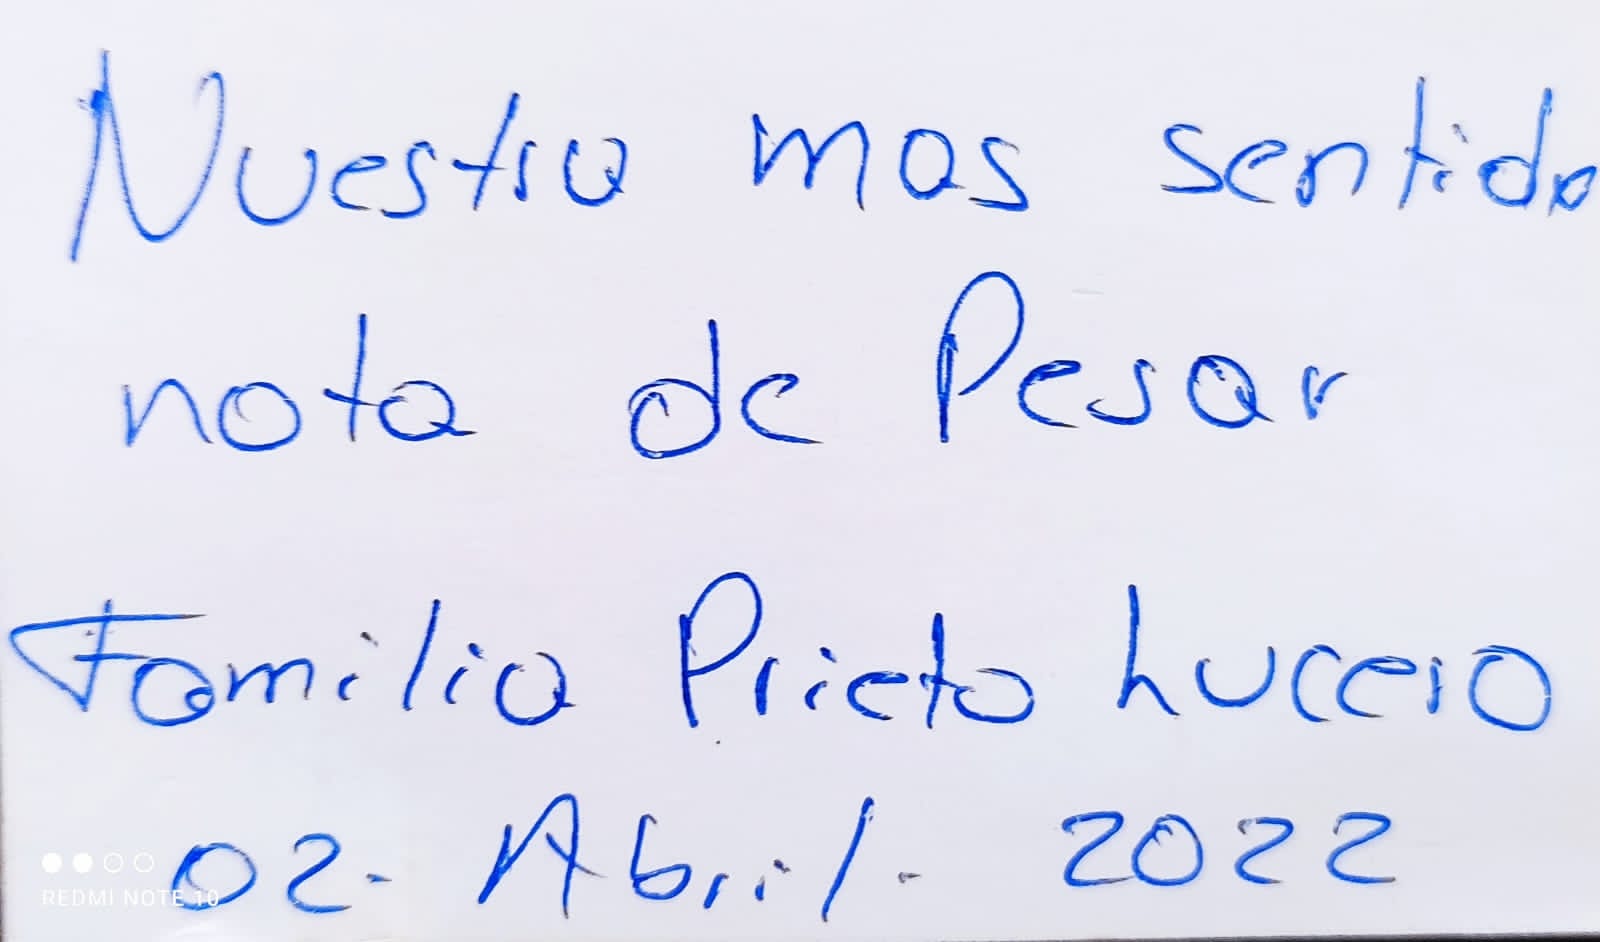 Nuestra mas sentida
nota de Pesar
Familia Prieto Lucero
02. Abril. 2022
REDMI NOTE 10